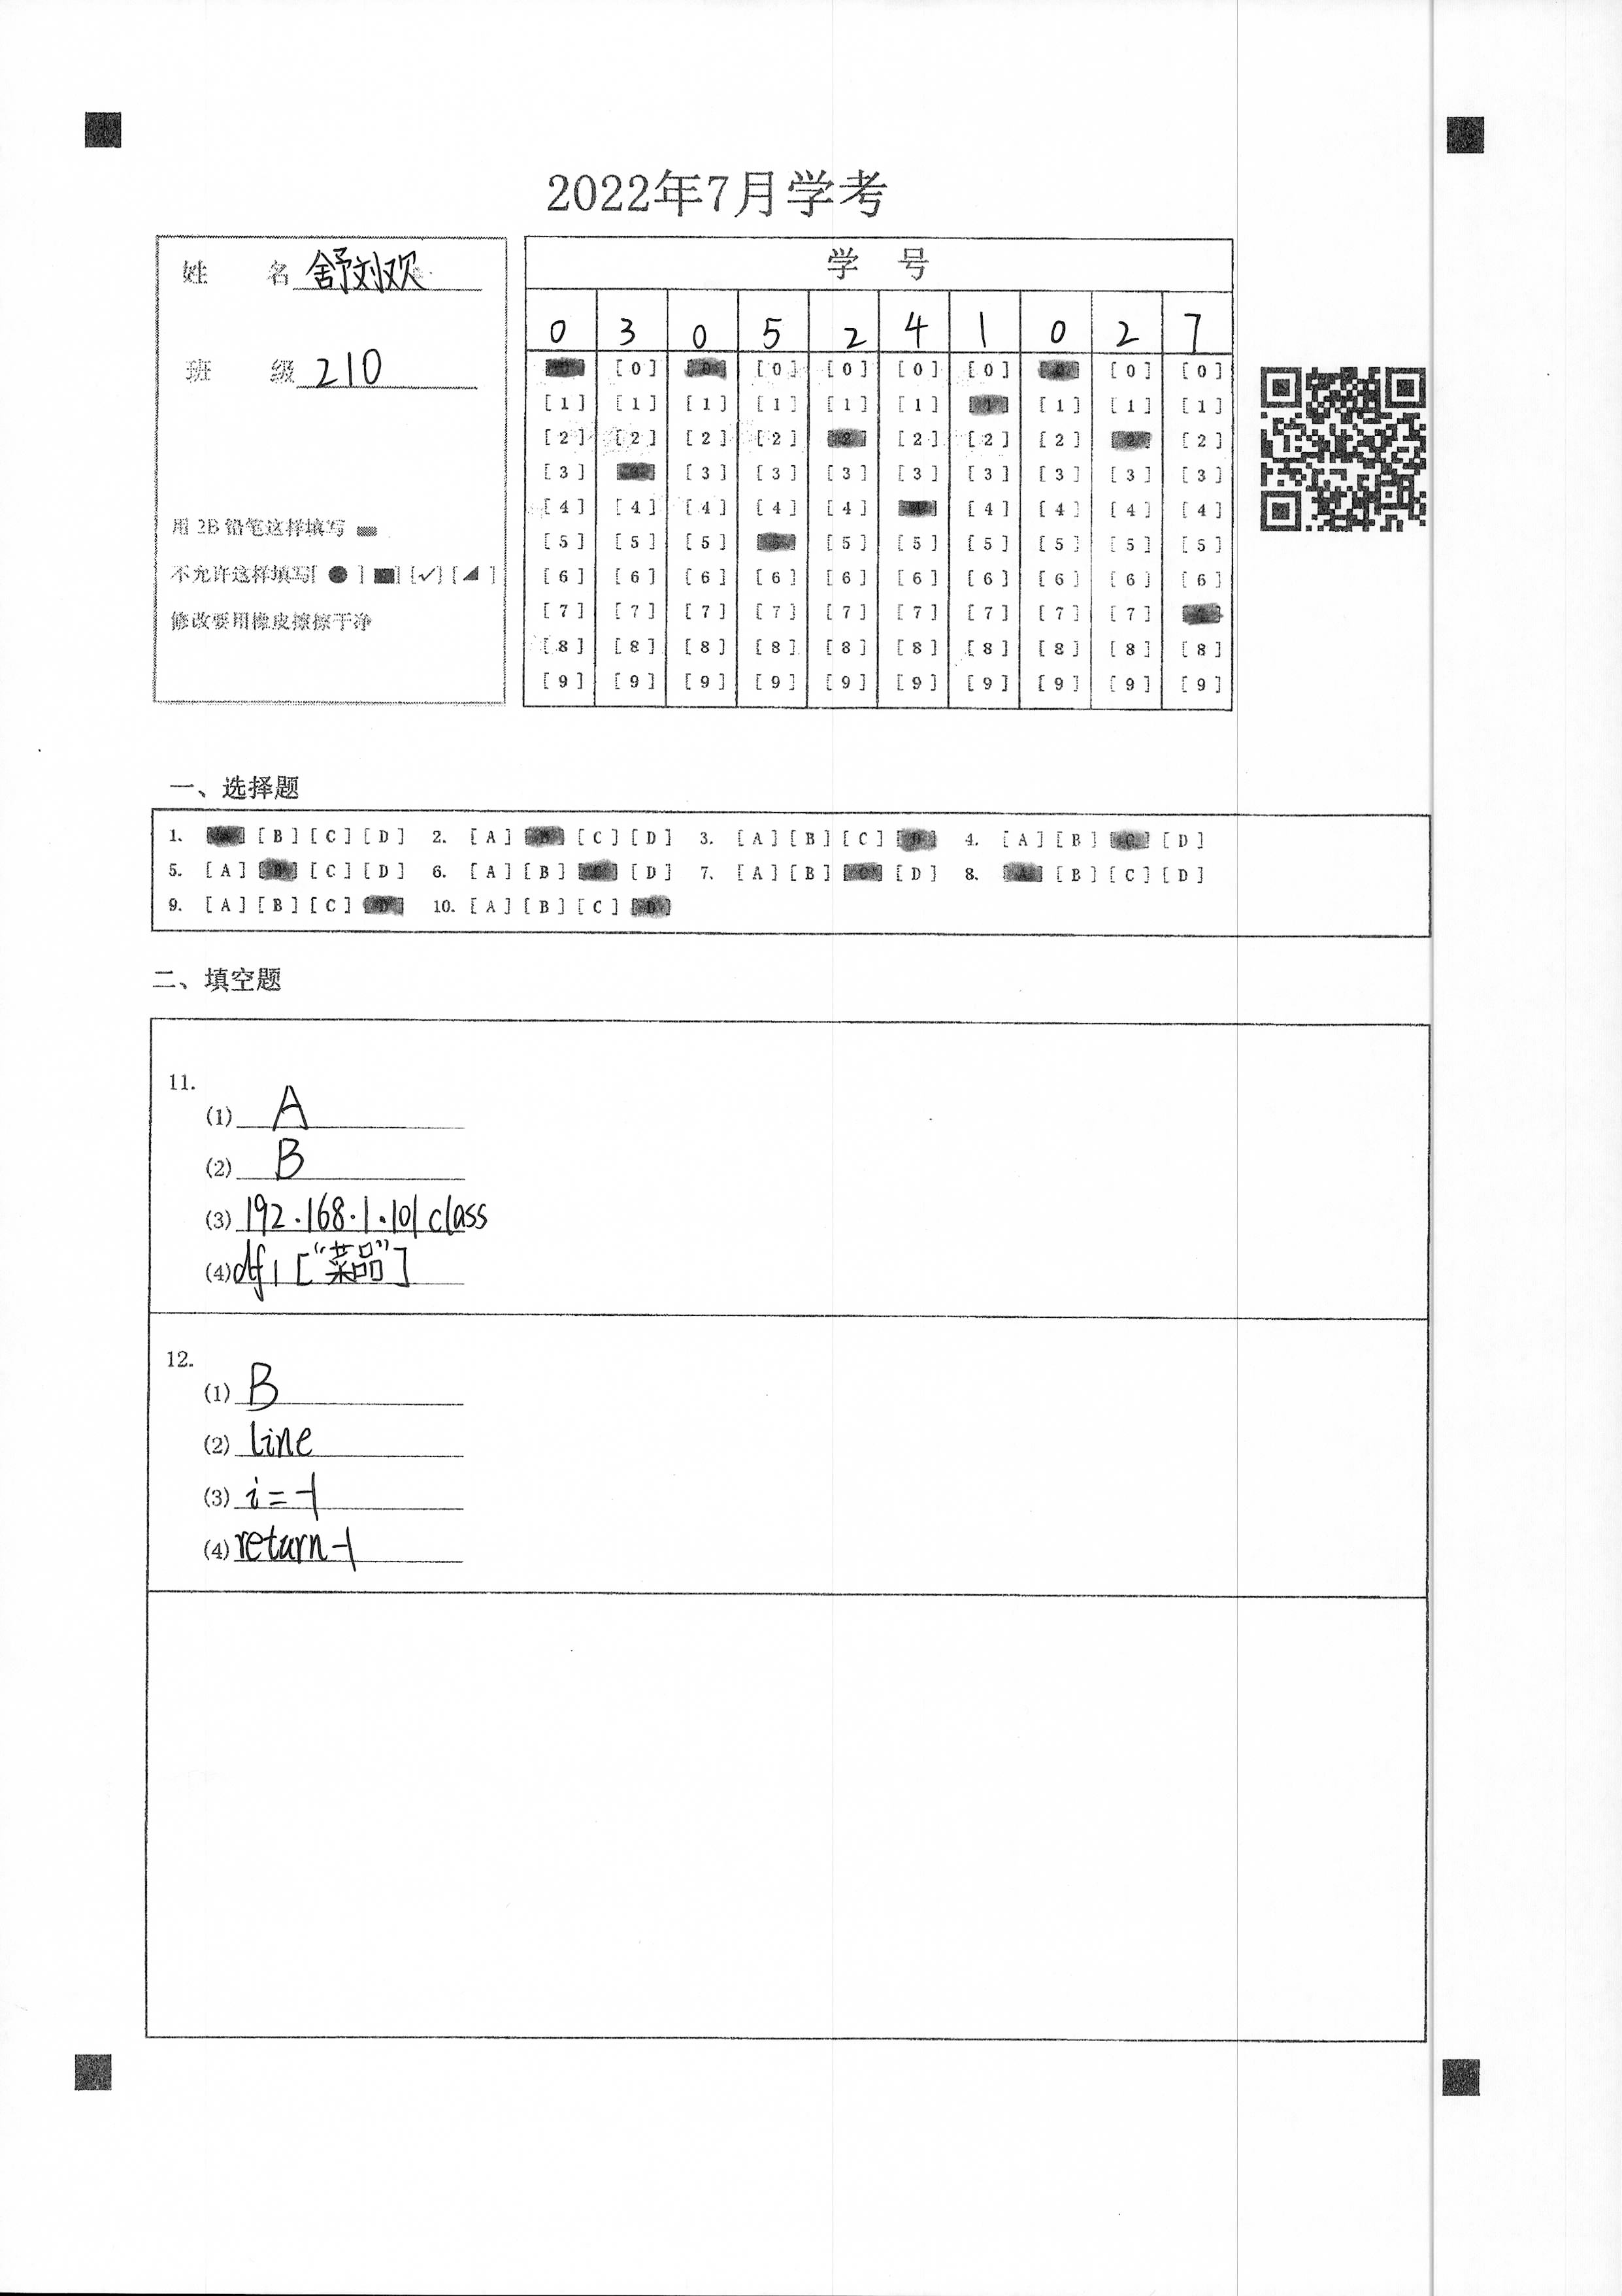 2022年7月学考
姓 名 舒刘欢
班 级 210
用 2B 铅笔这样填写
不允许这样填写[ ● ] [■] [✓] [◢ ]
修改要用橡皮擦擦干净
学 号
0 3 0 5 2 4 1 0 2 7
[0] [0] [0] [0] [0] [0] [0]
[1] [1] [1] [1] [1] [1] [1] [1] [1]
[2] [2] [2] [2] [2] [2] [2] [2]
[3] [3] [3] [3] [3] [3] [3] [3] [3]
[4] [4] [4] [4] [4] [4] [4] [4] [4]
[5] [5] [5] [5] [5] [5] [5] [5] [5]
[6] [6] [6] [6] [6] [6] [6] [6] [6] [6]
[7] [7] [7] [7] [7] [7] [7] [7] [7]
[8] [8] [8] [8] [8] [8] [8] [8] [8] [8]
[9] [9] [9] [9] [9] [9] [9] [9] [9] [9]
一、选择题
1. [A] [B] [C] [D] 2. [A] [B] [C] [D] 3. [A] [B] [C] [D] 4. [A] [B] [C] [D]
5. [A] [B] [C] [D] 6. [A] [B] [C] [D] 7. [A] [B] [C] [D] 8. [A] [B] [C] [D]
9. [A] [B] [C] [D] 10. [A] [B] [C] [D]
二、填空题
11.
(1) A
(2) B
(3) 192.168.1.101 class
(4) df1["菜品"]
12.
(1) B
(2) line
(3) i=-1
(4) return-1